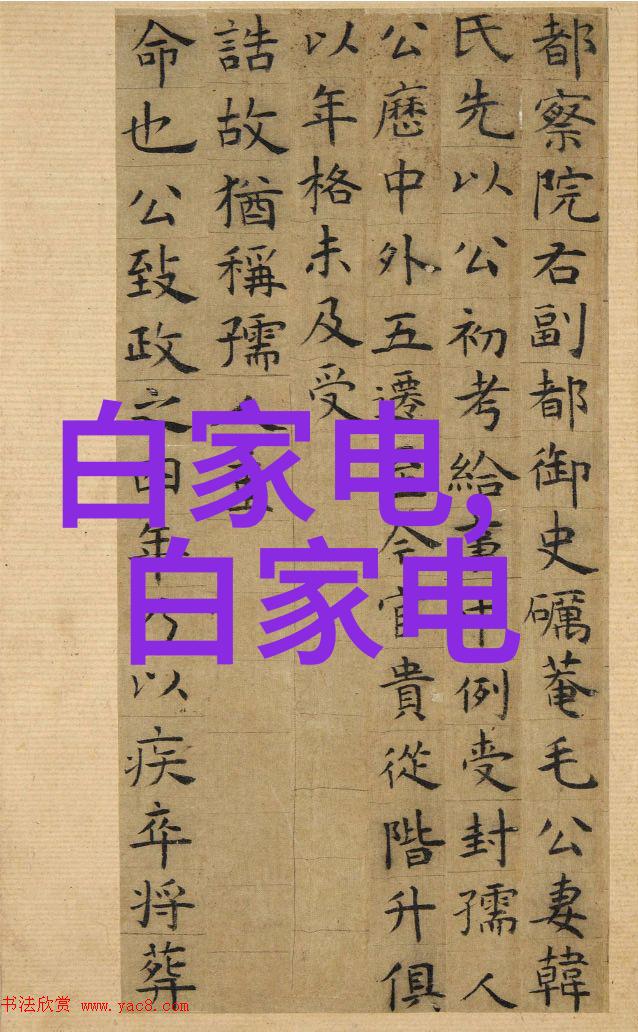 都察院右副都御史礪菴毛公妻韓
氏先以公初考給事中例受封孺人
公歷中外五遷至今官貴從階升俱
以年格未及受
誥故猶稱孺人
命也公致政之四年乃以疾卒将葬
白家电,
白家电
书法欣赏 www.yac8.com